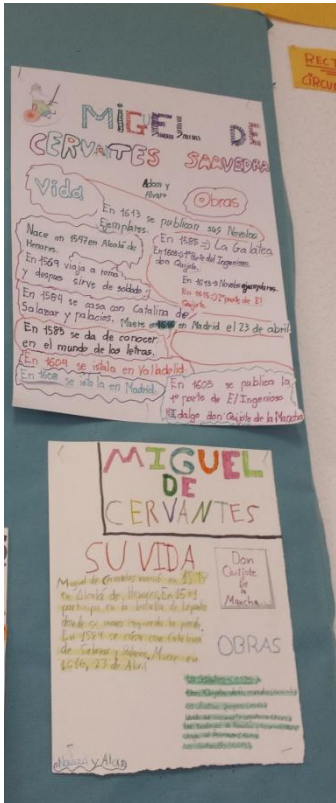 RECT
CIRCU
MIGUEL DE
CERVATES SAAVEDRA
Vida
Adan y
Alvaro
Obras
En 1613 se publican sus Novelas
Ejemplares.
Nace en 1547 en Alcalá de
Henares.
En 1569 viaja a roma
y despues sirve de soldado
En 1584 se casa con Catalina de
Salazar y palacios. Muere en 1616 en Madrid el 23 de abril
En 1585 se da de conocer
en el mundo de las letras.
En 1604 se istala en Valladolid
En 1608 se istala en Madrid
En 1585 => La Galatea
1ª parte del Ingenioso
don Quijote.
En 1613 => Novelas ejemplares.
En 1615 => 2ª parte de El
Quijote.
En 1605 se publica la
1ª parte de El Ingenioso
Hidalgo don Quijote de la Mancha
MIGUEL
DE
CERVANTES
SU VIDA
Miguel de Cervantes nació en
en Alcalá de Henares. En 1571
participa en la batalla de Lepanto
donde su mano izquierda la pierde.
En 1584 se casa con Catalina
de Salazar y Palacios. Muere en
1616, 23 de Abril
Don
Quijote
De la
Mancha
OBRAS